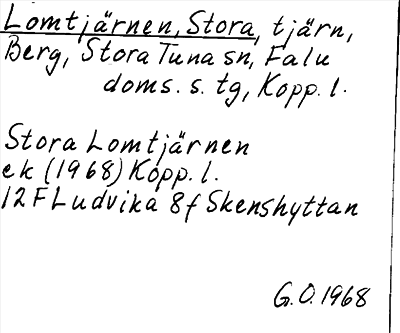 Lomtjärnen, Stora, tjärn,
Berg, Stora Tuna sn, Falu
doms. s. tg, Kopp. l.
Stora Lomtjärnen
ek (1968) Kopp. l.
12 F Ludvika 8f Skenshyttan
G.O. 1968